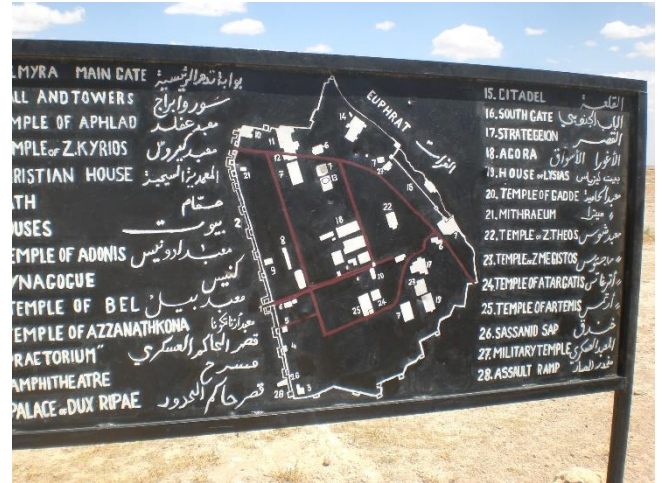 LMYRA MAIN GATE بوابة تدمر الرئيسية
ALL AND TOWERS سور وابراج
EMPLE OF APHLAD معبد عفلد
EMPLE OF Z.KYRIOS معبد
RISTIAN HOUSE المعمدية المسيحية
ATH حمّام
OUSES بيوت
TEMPLE OF ADONIS معبد ادونيس
YNAGOGUE كنيس
TEMPLE OF BEL معبد بيل
TEMPLE OF AZZANATHKONA معبد
RAETORIUM" قصر الحاكم العسكري
AMPHITHEATRE مسرح
PALACE OF DUX RIPAE قصر حاكم الحدود
EUPHRAT
الفرات
15. CITADEL القلعة
16. SOUTH GATE الباب الجنوبي
17. STRATEGEION القصر
18. AGORA الأغورا الأسواق
19. HOUSE OF LYSIAS بيت
20. TEMPLE OF GADDE معبد
21. MITHRAEUM ميترا
22. TEMPLE OF Z.THEOS معبد
23. TEMPLE OF Z.MEGISTOS
24. TEMPLE OF ATARGATIS
25. TEMPLE OF ARTEMIS
26. SASSANID SAP خندق
27. MILITARY TEMPLE المعبد العسكري
28. ASSAULT RAMP